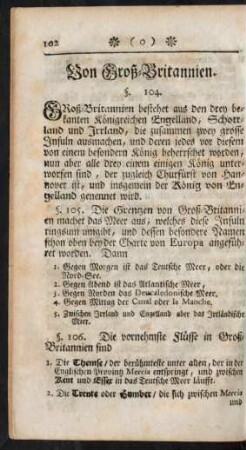 102 ❀ ( o ) ❀
Von Groß-Britannien.
§. 104.
GRoß-Britannien bestehet aus den drey be-
kanten Königreichen Engelland, Schott-
land und Irrland, die zusammen zwey grosse
Insuln ausmachen, und deren jedes vor diesem
von einem besondern König beherrschet worden,
nun aber alle drey einem einigen König unter-
worfen sind, der zugleich Churfürst von Han-
nover ist, und insgemein der König von En-
gelland genennet wird.
§. 105. Die Grenzen von Groß-Britanni-
en machet das Meer aus, welches diese Insuln
ringsum umgibt, und dessen besondere Namen
schon oben bey der Charte von Europa angefüh-
ret worden. Dann
1. Gegen Morgen ist das Teutsche Meer, oder die
Nord-See.
2. Gegen Abend ist das Atlantische Meer,
3. Gegen Norden das Deucaledonische Meer.
4. Gegen Mittag der Canal oder la Manche,
5. Zwischen Irrland und Engelland aber das Irrländische
Meer.
§. 106. Die vornehmste Flüsse in Groß-
Britannien sind
1. Die Themse, der berühmteste unter allen, der in der
Englischen Provinz Mercia entspringt, und zwischen
Kent und Essex in das Teutsche Meer läufft.
2. Die Trente oder Humber, die sich zwischen Mercia
und